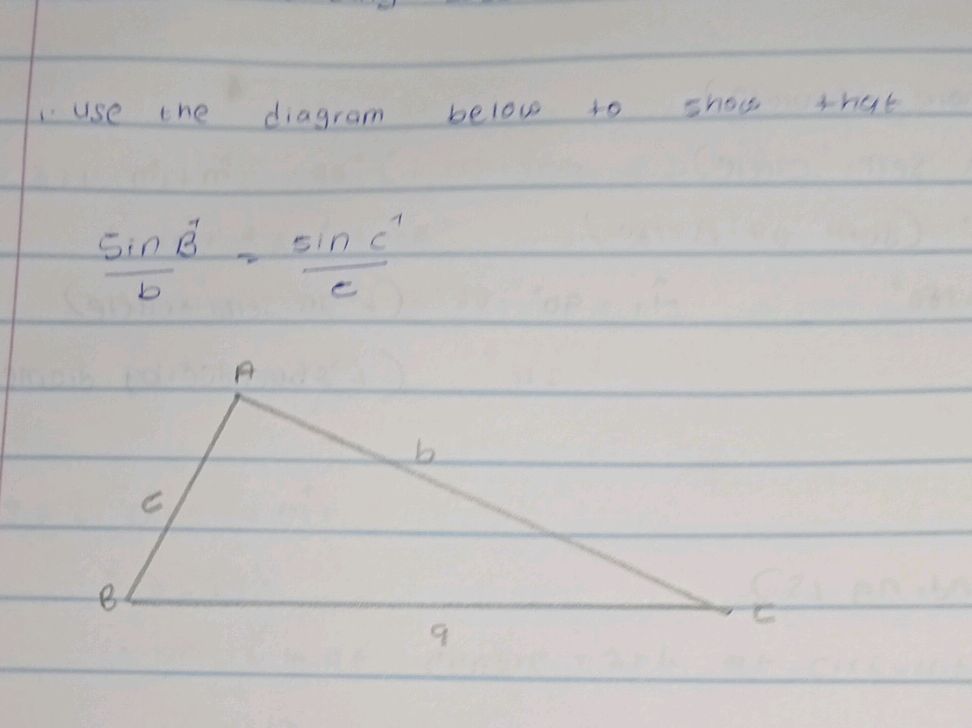 1. use the diagram below to show that
sin B̂ = sin Ĉ
b c
A
b
c
B
C
a